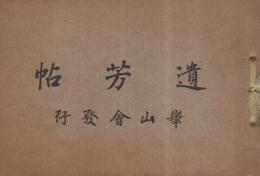 遺芳帖
崋山會發行